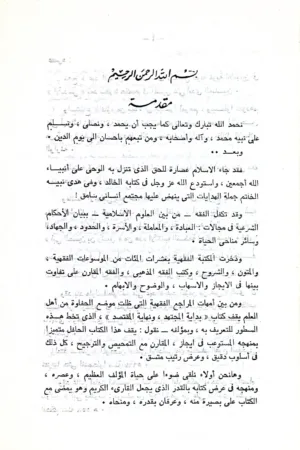 بسم الله الرحمن الرحيم
مقدمة
نحمد الله تبارك وتعالى كما يجب أن يحمد ، ونصلى ، ونسلم
على نبيه محمد ، وآله وأصحابه ، ومن تبعهم باحسان الى يوم الدين .
وبعد ..
فقد جاء الاسلام عصارة للحق الذى تنزل به الوحى على أنبياء
الله أجمعين ، واستودع الله عز وجل فى كتابه الخالد ، وفى هدى نبيه
الخاتم جملة الهدايات التى ينهض عليها مجتمع انسانى سامق !
وقد تكفل الفقه — من بين العلوم الاسلامية — ببيان الأحكام
الشرعية فى مجالات : العبادة ، والمعاملة ، والأسرة ، والحدود ، والجهاد ،
وسائر مناحى الحياة .
وذخرت المكتبة الفقهية بعشرات المئات من الموسوعات الفقهية ،
والمتون ، والشروح ، وكتب الفقه المذهبى ، والفقه المقارن على تفاوت
بينها فى الايجاز والاسهاب ، والوضوح والابهام .
ومن بين أمهات المراجع الفقهية التى ظلت موضع الحفاوة من أهل
العلم يقف كتاب « بداية المجتهد ، ونهاية المقتصد » ، الذى تخط هذه
السطور للتعريف به ، وبمؤلفه — نقول : يقف هذا الكتاب الحافل متميزا
بمنهجه المستوعب فى ايجاز ، المقارن مع التمحيص والترجيح ، كل ذلك
فى أسلوب دقيق ، وعرض رتيب متسق .
وهانحن أولاء نلقى ضوءا على حياة المؤلف العظيم ، وعصره ،
ومنهجه فى عرض كتابه بالقدر الذى يجعل القارىء الكريم وهو يمضى مع
الكتاب على بصيرة منه ، وعرفان بقدره ، ومنحاه .